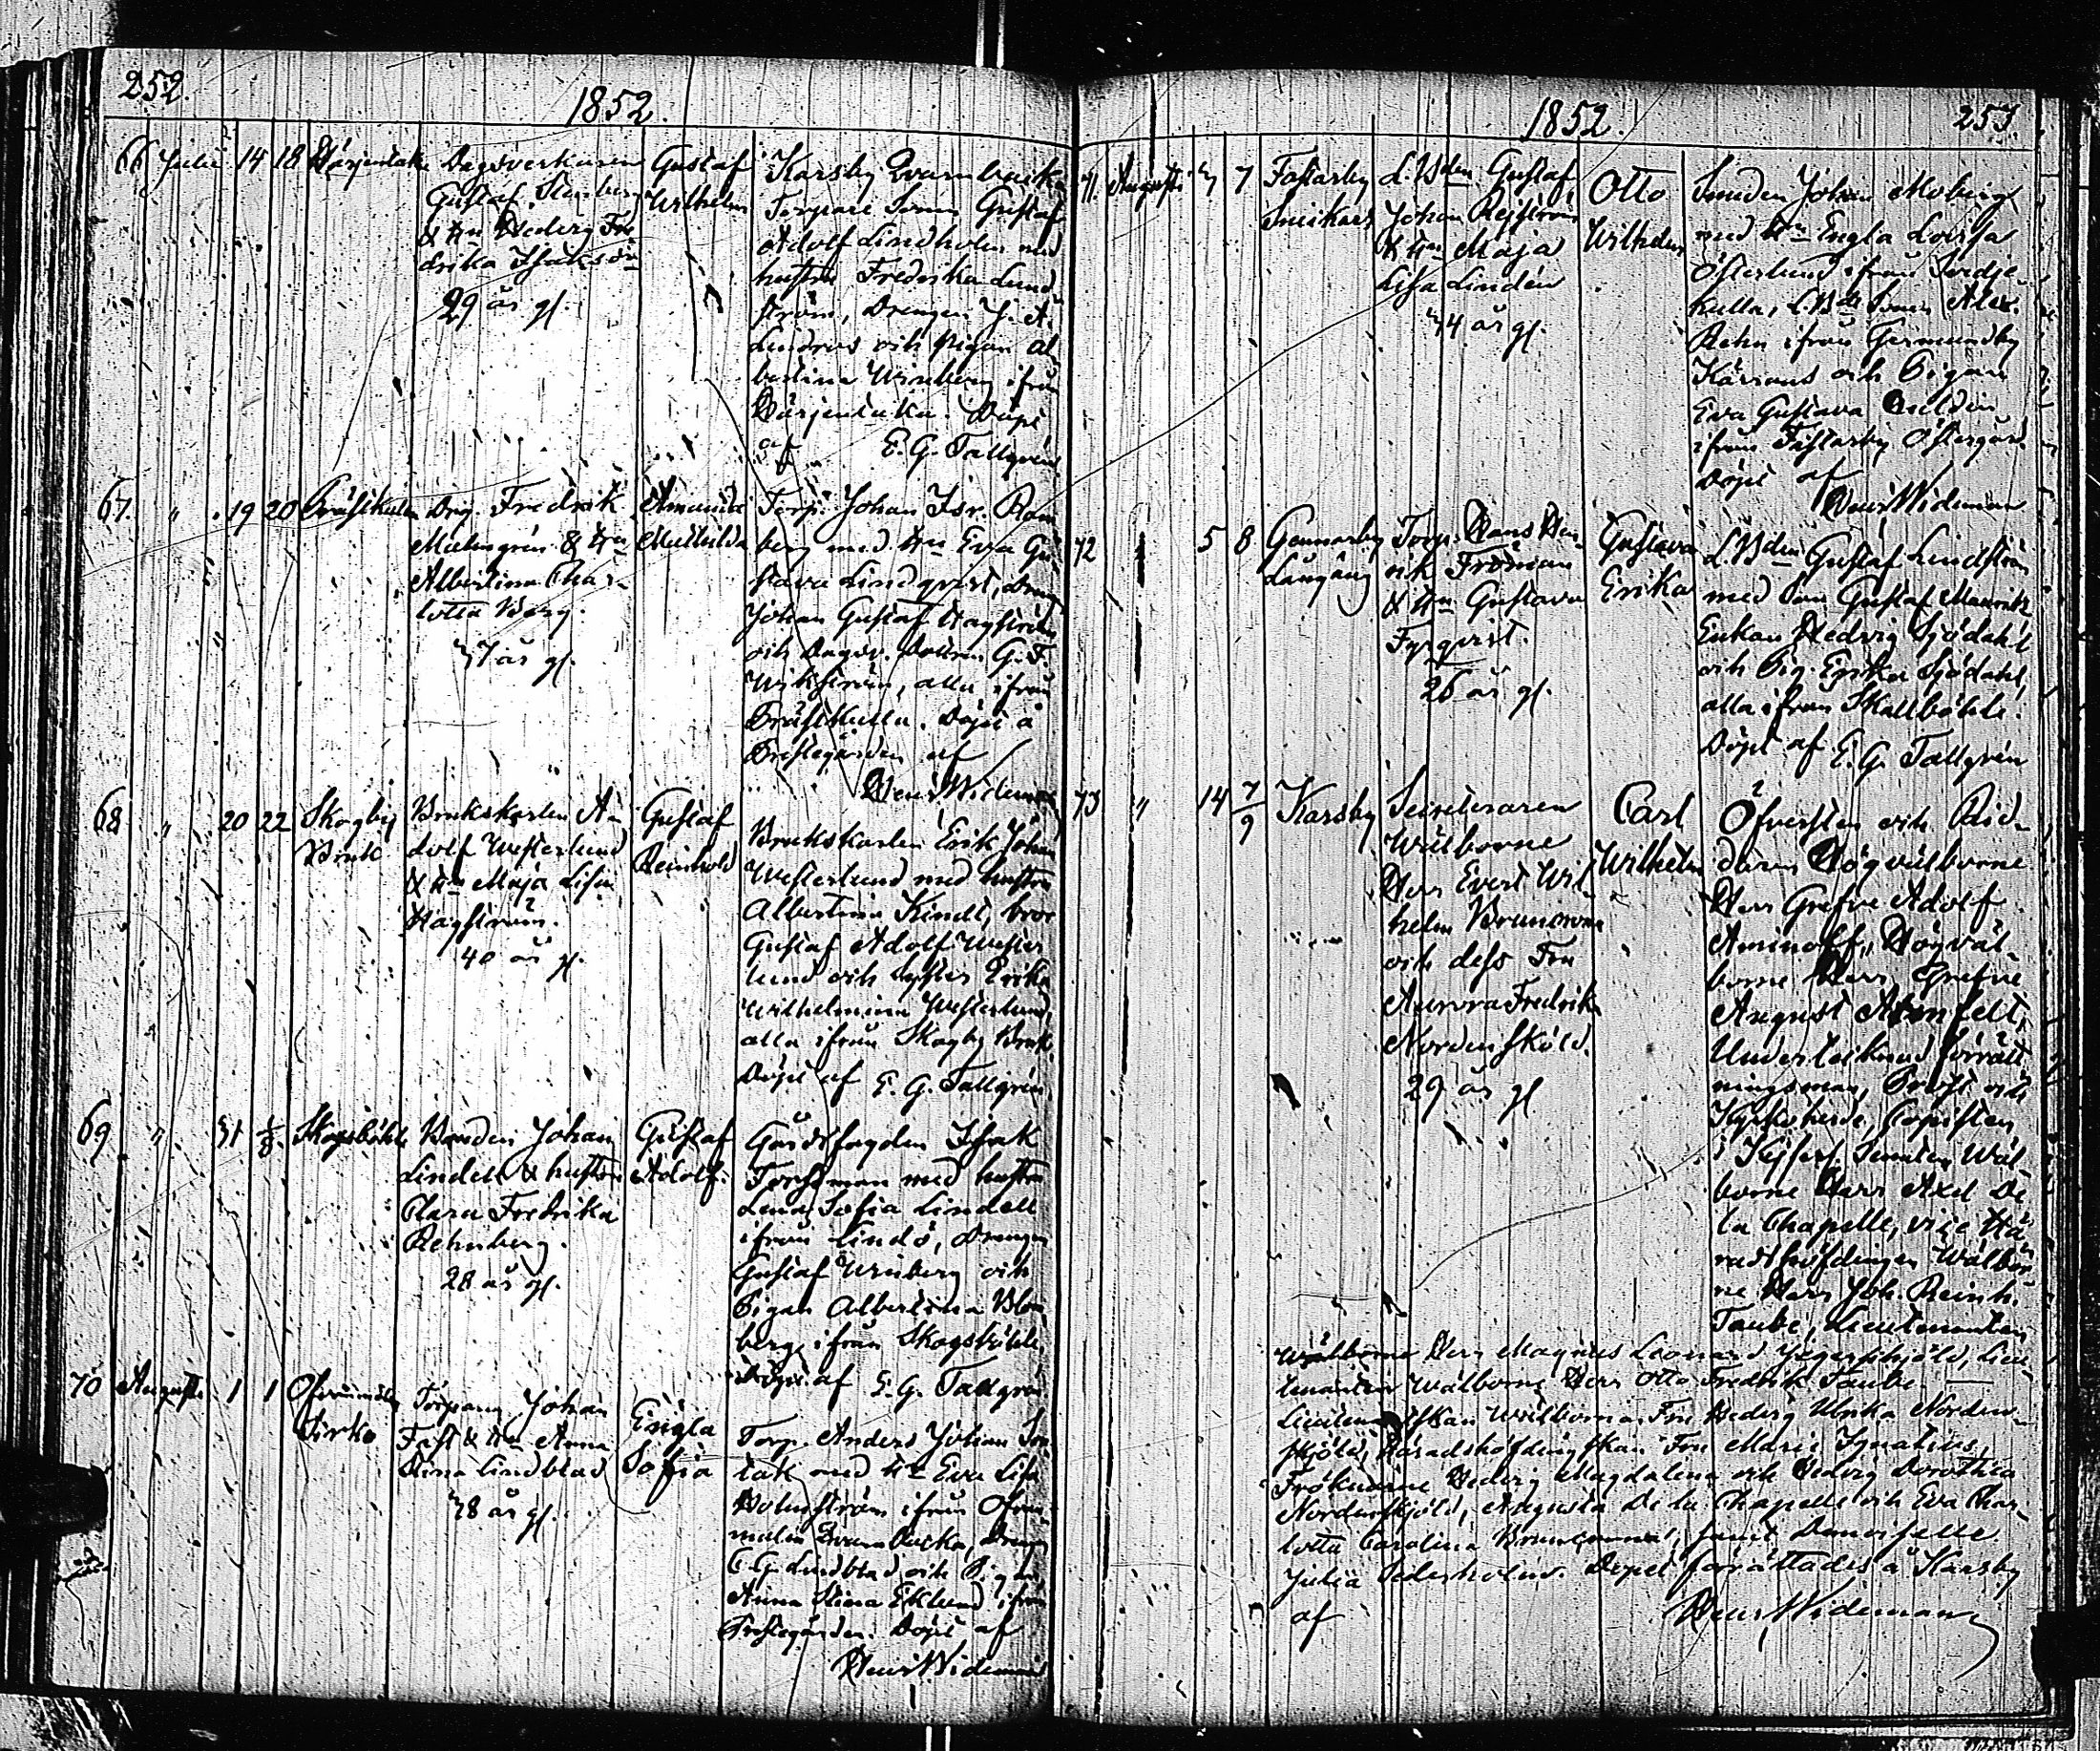 252.
1852.
66 Julii 14 18
Dagsverkaren
Gustaf Stenberg
& Hu Hedvig Fre
drika Isaksön
29 år gl.
Gustaf
Wilhelm
Karsby Qvarnbacka
Torpare Sonen Gustaf
Adolf Lindholm med
hustru Fredrika Lund
ström, Drengen J. A.
Lindroos och Pigan Al
bertina Winberg ifrån
Döpt
af E. G. Tallgren
67. " 19 20 Prästkulla
Drg. Fredrik
Malmgrén & Hu
Albertina Char
lotta Berg.
37 år gl.
Amanda
Mathilda
Torp. Johan Isr. Ram
berg med Hu Eva Gu
stava Lindqvist, Dreng
Johan Gustaf Hagström
och Dagsv. Dottren G. F.
Wikström, alla ifrån
Prästkulla. Döpt å
Prestegården af
Henr Wideman
68 " 20 22 Skogby
Bruk
Brukskarlen A
dolf Westerlund
& Hu Maja Lisa
Hagström.
40 år gl.
Gustaf
Reinhold
Brukskarlen Erik Johan
Westerlund med hustru
Albertina Kindt, bror
Gustaf Adolf Wester
lund och Syster Erika
Wilhelmina Westerlund,
alla ifrån Skogby Bruk.
Döpt af E. G. Tallgrén
69 " 31 1/8 Skogsböhle
Bonden Johan
Lindell & hustru
Clara Fredrika
Rehnberg.
28 år gl.
Gustaf
Adolf.
Gårdsfogden Isak
Forsman med hustru
Lena Sofia Lindell
ifrån Lindö, Drengen
Gustaf Winberg och
Pigan Albertina Blom
berg ifrån Skogsböhle.
Döpt af E. G. Tallgrén
70 Augusti 1 1
Torparen Johan
Fast & Hu Anna
Stina Lindblad
38 år gl.
Engla
Sofia
Torp. Anders Johan
med Hu Eva Lisa
Holmström ifrån Öfver
malm Qvarnbacka, Dreng
C. G. Lindblad och Pigan
Anna Stina Eklund ifrån
Prestegården. Döpt af
Henr Wideman
1852.
253.
71. Augusti 3 7 Fastarby
Snickars
L. Bden Gustaf
Johan Rejström
& Hu Maja
Lisa Lindén
34 år gl.
Otto
Wilhelm
Smeden Johan Moberg
med Hu Engla Lovisa
Österlund ifrån Svedje
kulla, L. Bde Sonen Alex.
Rehn ifrån Germundby
Kärians och Pigan
Eva Gustava
ifrån Fastarby Östergård
Döpt af
Henr Wideman
72 5 8 Gennarby
Långäng
Torp. Hans Hen
rik Froman
& Hu Gustava
Fyrqvist.
26 år gl.
Gustava
Erika
L. Bden Gustaf Lindström
med Son Gustaf Mauritz
Enkan Hedvig Sjödahl
och Pig. Erika Sjödahl,
alla ifrån Skallböhle.
Döpt af E. G. Tallgrén
73 " 14 7/9 Karsby
Wälborne
Herr Evert Wil
helm Brunow
och dess Fru
Aurora Fredrika
Nordenskjöld.
29 år gl
Carl
Wilhelm
Öfversten och Rid
daren Högvälborne
Herr Grefve Adolf
Aminoff, Högväl
borne Herr Grefve
August Armfelt,
Undertecknad förrätt
ningsman, Prost och
Kyrkoherde, Copisten
i Kejserl. Senaten Wäl
borne Herr Axel De
la Chapelle, vice Hä
radshöfdingen Wälbor
ne Herr Joh. Reinh.
Taube, Lieutenanten
Wälborne Herr Magnus Leonard Jägerskjöld, Lieu
tenanten Wälborne Herr Otto Fredrik Taube —
Lieutenantskan Wälborna Fru Hedvig Ulrika Norden
skjöld, Häradshöfdingskan Fru Marie Ignatius,
Fröknarne Hedvig Magdalena och Hedvig Dorothea
Nordenskjöld, Augusta De la Chapelle och Eva Char
lotta Carolina Brunow, samt Demoiselle
Julia Sederholm. Dopet förrättades å Karsby
af Henr Wideman